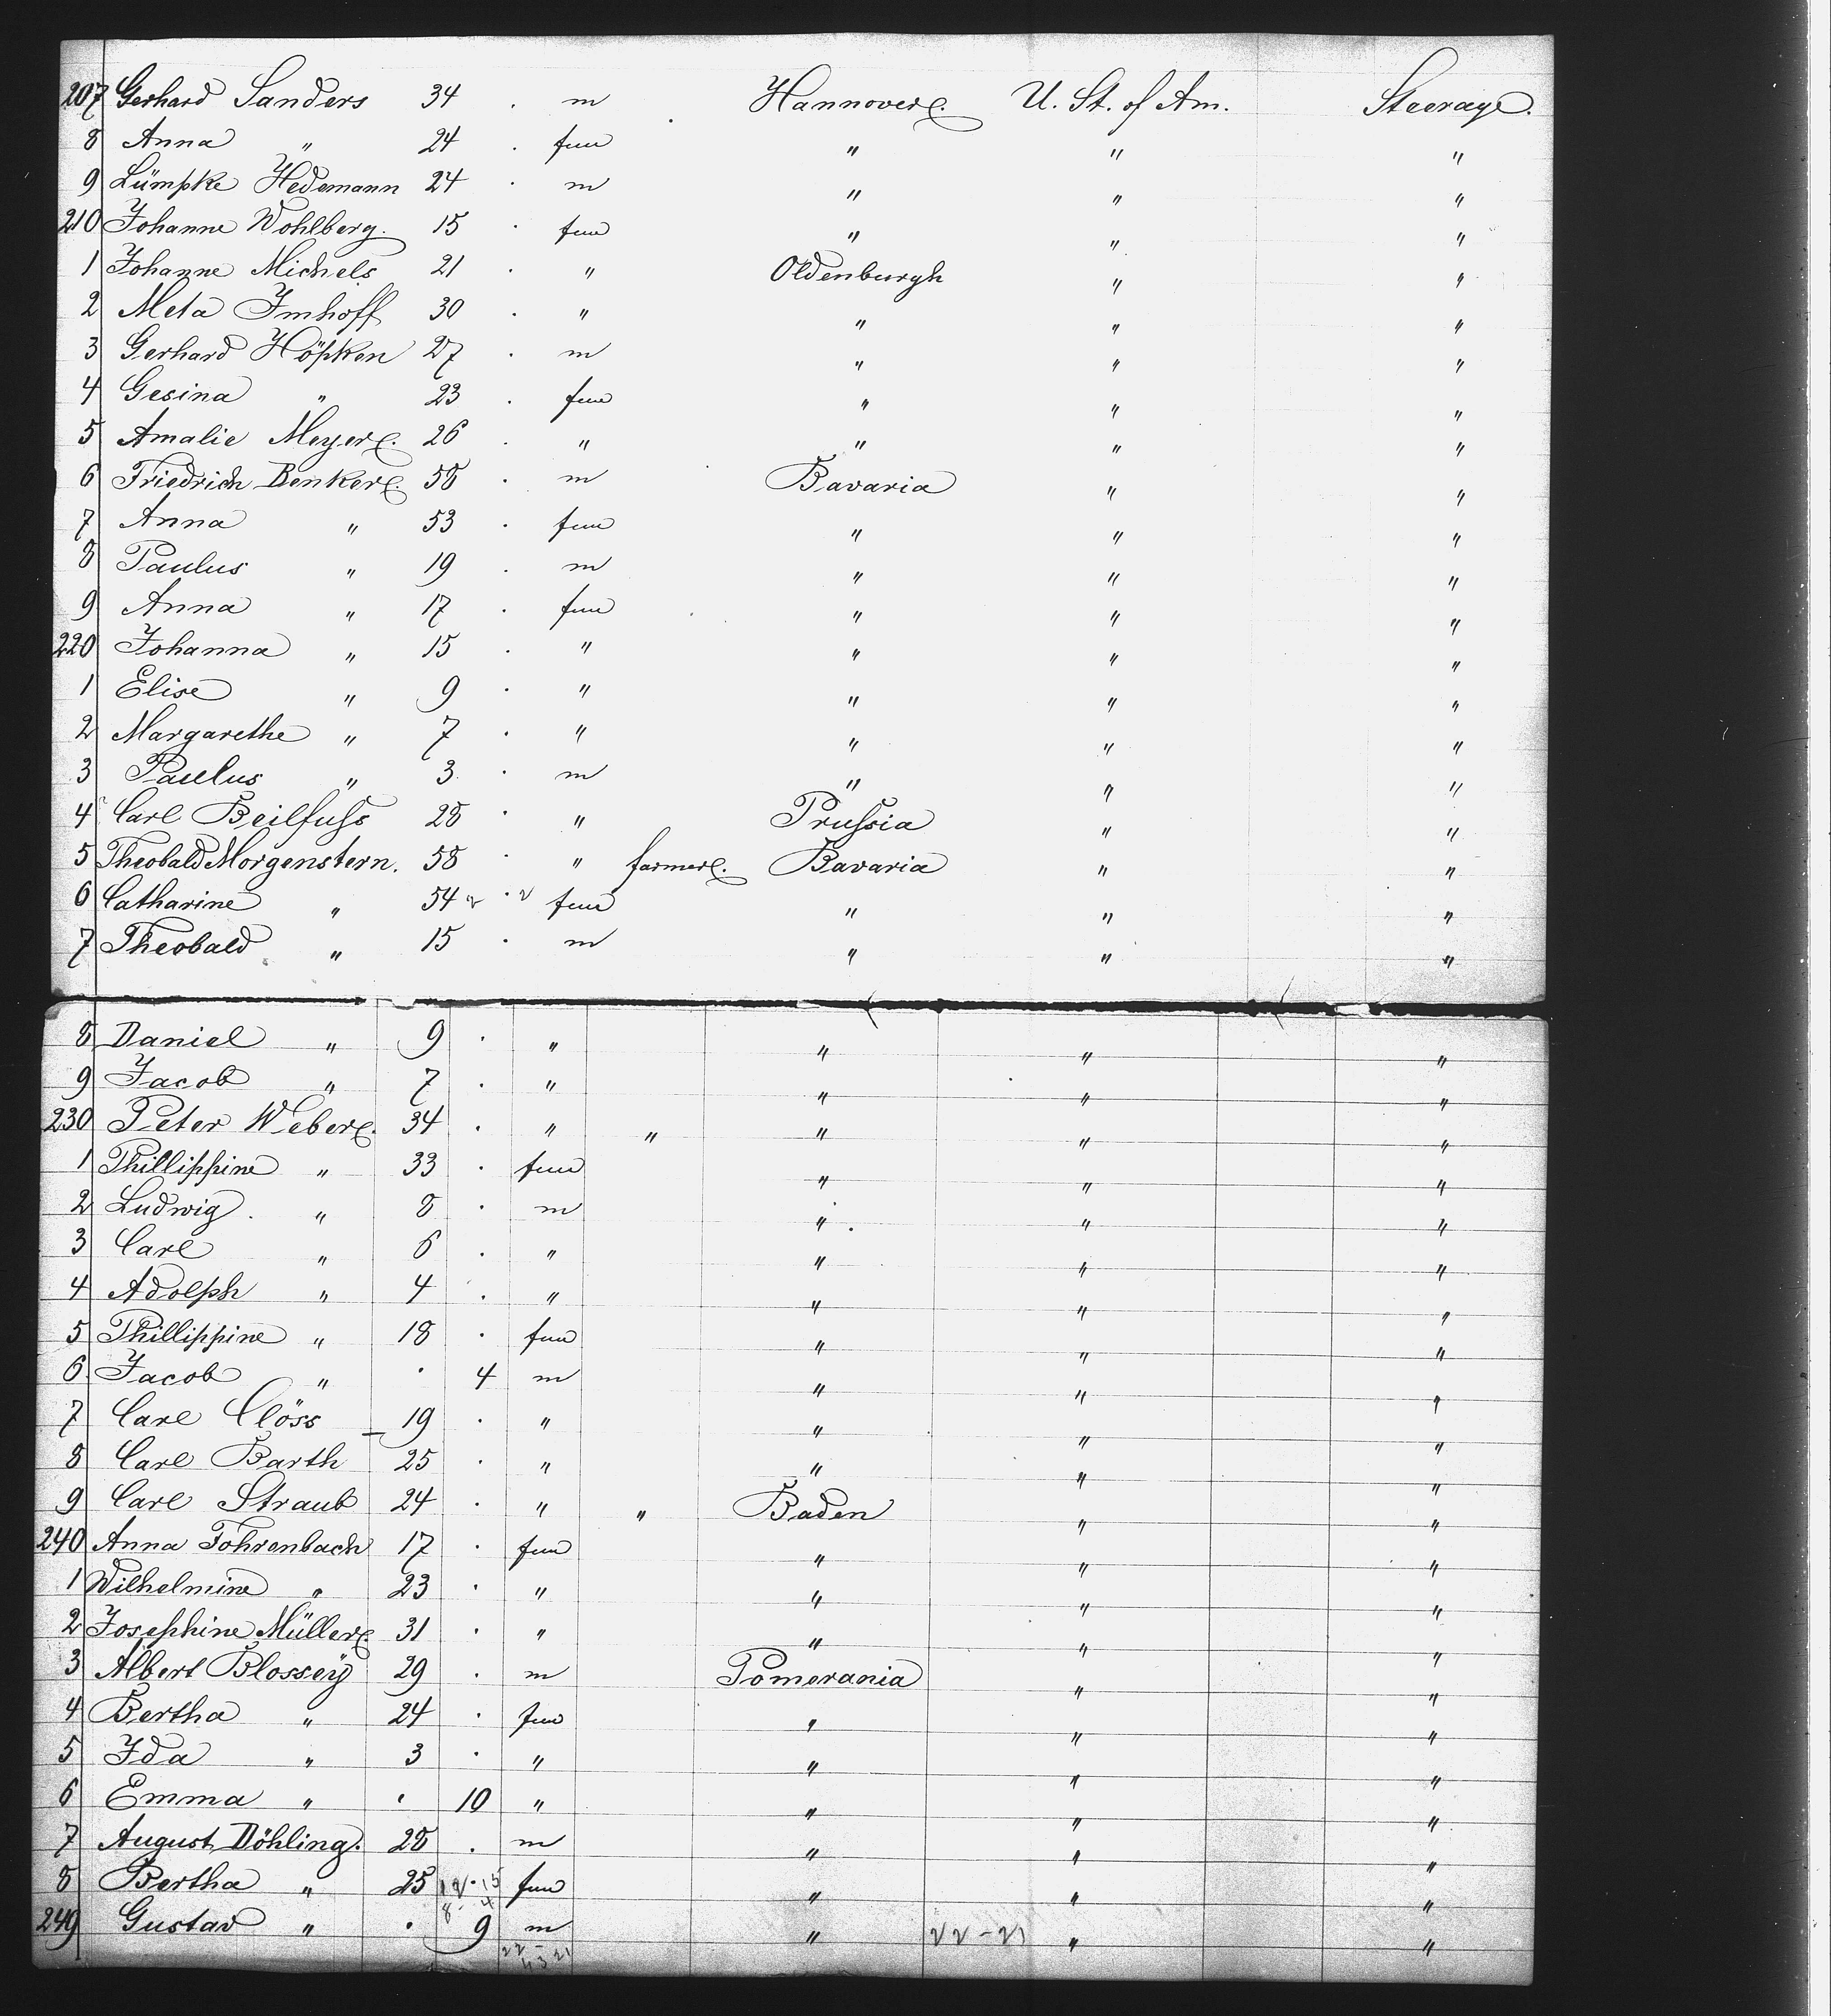 207 Gerhard Sanders 34 . m Hannover. U. St. of Am. Steerage.
8 Anna " 24 . fem " " "
9 Lümpke Hedemann 24 . m " " "
210 Johanne Wohlberg. 15 . fem " " "
1 Johanne Michels 21 . " Oldenburgh " "
2 Meta Imhoff 30 . " " " "
3 Gerhard Höpken 27 . m " " "
4 Gesina " 23 . fem " " "
5 Amalie Meyer. 26 . " " " "
6 Friedrich Denker. 58 . m Bavaria " "
7 Anna " 53 . fem " " "
8 Paulus " 19 . m " " "
9 Anna " 17 . fem " " "
220 Johanna " 15 . " " " "
1 Elise " 9 . " " " "
2 Margarethe " 7 . " " " "
3 Paulus " 3 . m " " "
4 Carl Beilfuss 28 . " Prussia " "
5 Theobald Morgenstern. 58 . " farmer. Bavaria " "
6 Catharine " 54 . fem " " "
7 Theobald " 15 . m " " "
8 Daniel " 9 . " " " "
9 Jacob " 7 . " " " "
230 Peter Weber. 34 . " " " " "
1 Phillippine " 33 . fem " " "
2 Ludwig. " 8 . m " " "
3 Carl " 6 . " " " "
4 Adolph " 4 . " " " "
5 Phillippine " 18 . fem " " "
6 Jacob " . 4 m " " "
7 Carl Clöss 19 . " " " "
8 Carl Barth 25 . " " " "
9 Carl Straub 24 . " " Baden " "
240 Anna Fohrenbach 17 . fem " " "
1 Wilhelmine " 23 . " " " "
2 Josephine Müller. 31 . " " " "
3 Albert Blossey 29 . m Pomerania " "
4 Bertha " 24 . fem " " "
5 Ida " 3 . " " " "
6 Emma " . 10 " " " "
7 August Döhling. 28 . m " " "
8 Bertha " 25 . fem " " "
249 Gustav " . 9 m " 22-21 " "